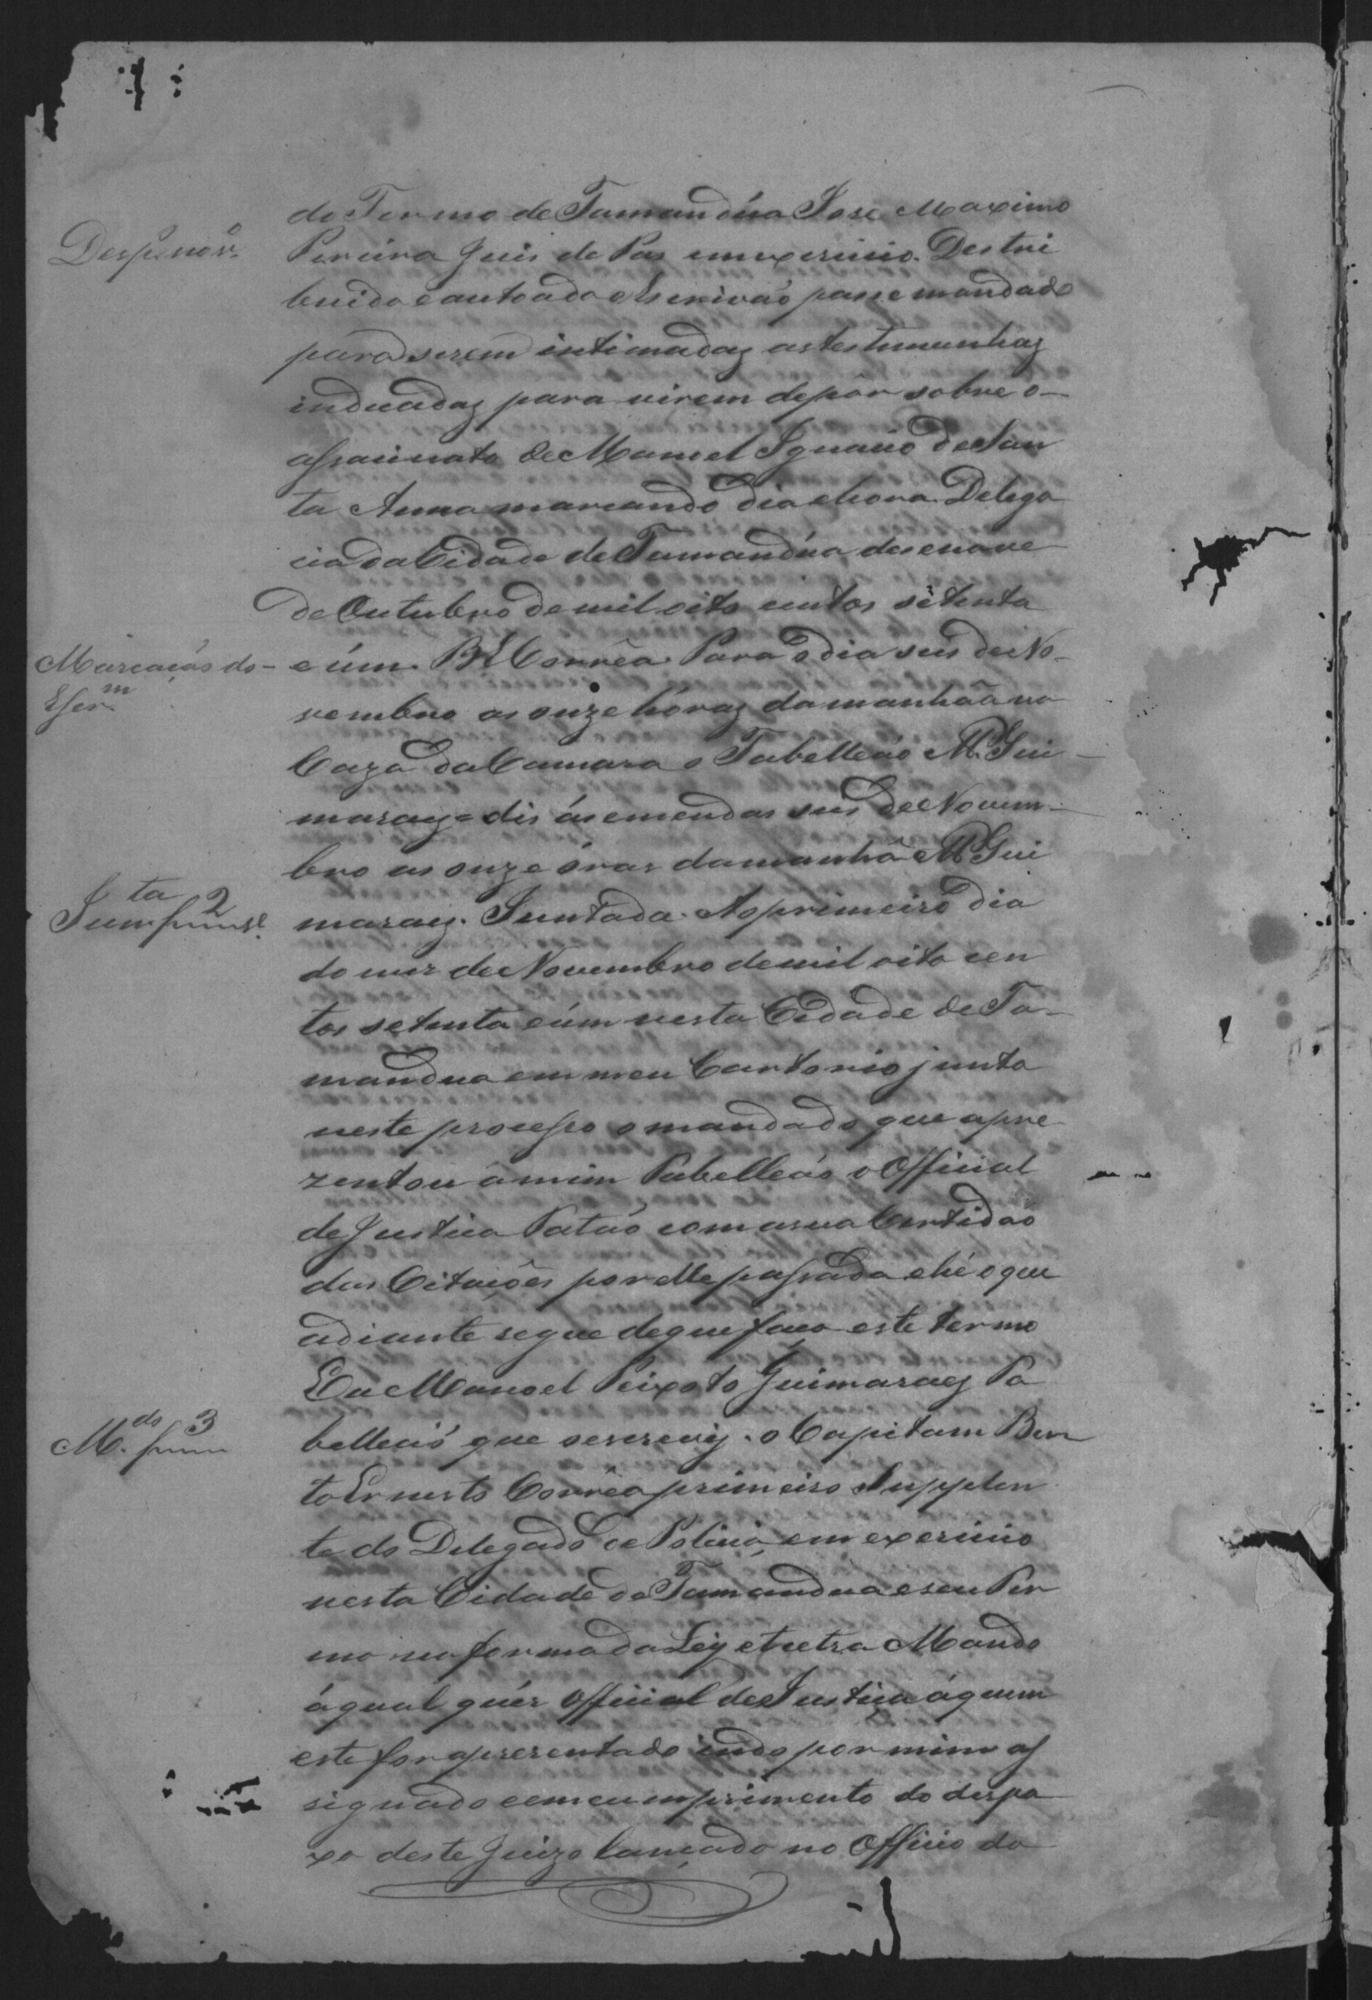 do Termo de Tamandúa Jose Maximo
Pereira Juis de Pas em exercicio. Destri
buido e autoado o Escrivaõ passe mandado
para serem intimadas as testemunhas
indicadas para virem depôr sobre o
assacinato de Manuel Ignacio de San
ta Anna marcando dia e hora. Delega
cia da Cidade de Tamandúa desenove
de Outubro de mil oito centos setenta
Marcaçaõ do
e úm. B E Corrêa. Para o dia seis de No
vembro as onze hóras da manhaã na
Caza da Camara o Tabelleaõ M. P. Gui
maraes = dis ás emendas seis de Novem
bro as onze óras da manhã M. P. Gui
Jun.ta 2
maraes. Juntada. Ao primeiro dia
do mez de Novembro de mil oito cen
tos setenta e úm nesta Cidade de Ta
mandua em meu Cartorio junto
neste processo o mandado que apre
zentou á mim Tabelleaõ o Official
de Justica Pataõ com a sua Certidaõ
das Citaçoẽs por elle passada e hé o que
adiante segue de que faco este termo
Eu Manoel Peixoto Guimaraes Ta
M.do 3
belleaõ que o escrevy. o Capitam Ben
to Ernesto Corrêa primeiro Supplen
te do Delegado de Policia, em exercicio
nesta Cidade de Tamandua e seu Ter
mo na forma da Ley etcetra Mando
á qual quér Official de Justiça á quem
este for apresentado indo por mim as
signado e em cumprimento do despa
xo deste Juizo lançado no Officio do